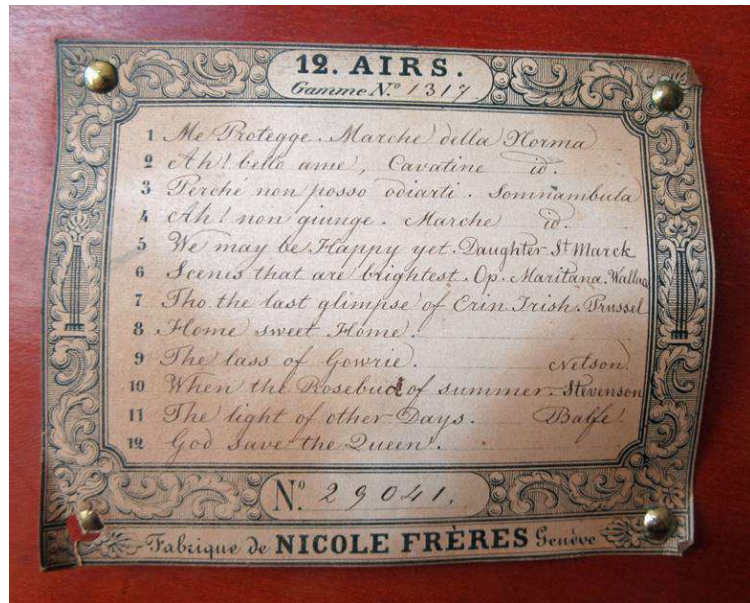 12. AIRS.
Gamme No. 1317
1 Me Protegge. Marche della Norma
2 Ah! bello ame, Cavatine id.
3 Perche non posso odiarti. Somnambula
4 Ah! non giunge. Marche id.
5 We may be Happy yet. Daughter St Marck
6 Scenes that are brightest. Op. Maritana. Wallace
7 Tho the last glimpse of Erin. Irish. Prussel
8 Home sweet Home.
9 The lass of Gowrie. Nelson.
10 When the Rosebud of summer. Stevenson
11 The light of other Days. Balfe
12 God save the Queen.
No. 29041.
Fabrique de NICOLE FRÈRES Genève